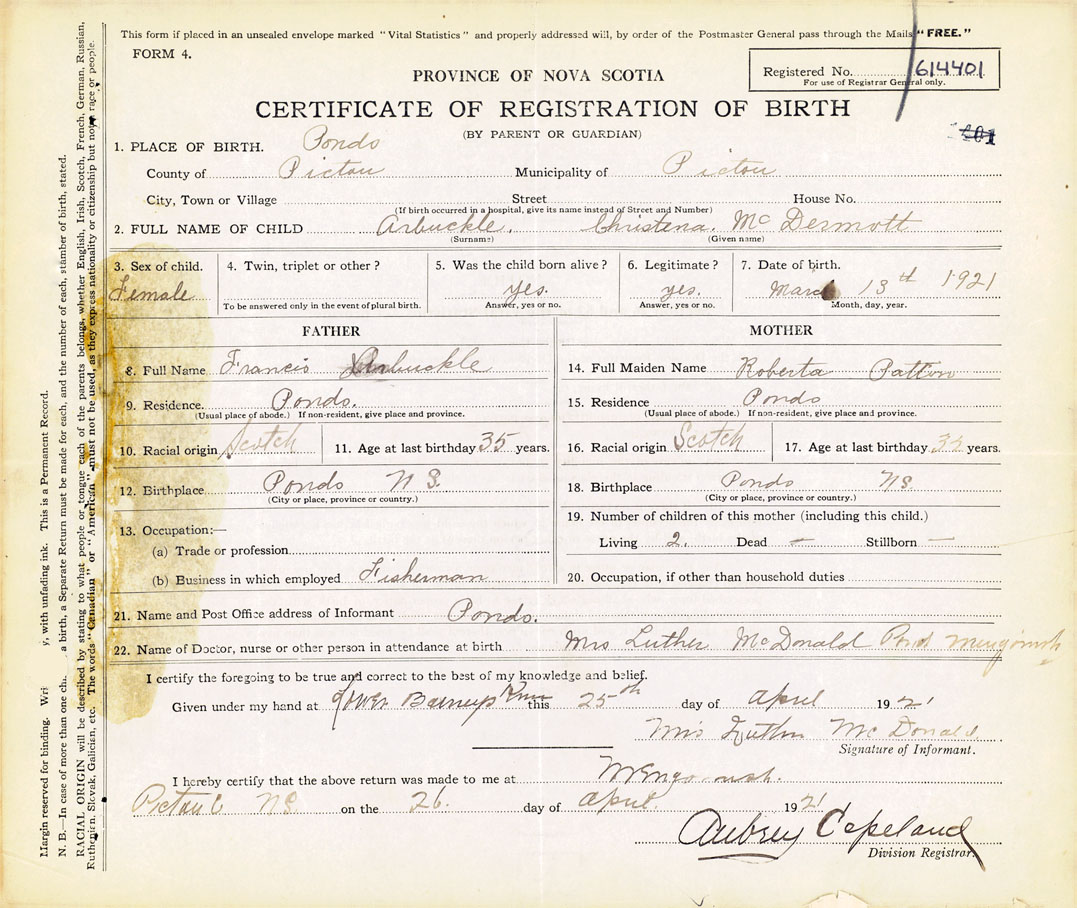 This form if placed in an unsealed envelope marked "Vital Statistics" and properly addressed will, by order of the Postmaster General pass through the Mails "FREE."
FORM 4.
Registered No. 614401
For use of Registrar General only.
PROVINCE OF NOVA SCOTIA
CERTIFICATE OF REGISTRATION OF BIRTH
(BY PARENT OR GUARDIAN)
1. PLACE OF BIRTH. Ponds
County of Pictou Municipality of Pictou
City, Town or Village Street House No.
(If birth occurred in a hospital, give its name instead of Street and Number)
2. FULL NAME OF CHILD Arbuckle, Christena. McDermott
(Surname) (Given name)
3. Sex of child. 4. Twin, triplet or other? 5. Was the child born alive? 6. Legitimate? 7. Date of birth.
Female yes. yes. March 13th 1921
To be answered only in the event of plural birth. Answer, yes or no. Answer, yes or no. Month, day, year.
FATHER
8. Full Name Francis Arbuckle
9. Residence. Ponds.
(Usual place of abode.) If non-resident, give place and province.
10. Racial origin Scotch 11. Age at last birthday 35 years.
12. Birthplace Ponds N S.
(City or place, province or country.)
13. Occupation:—
(a) Trade or profession
(b) Business in which employed Fisherman
MOTHER
14. Full Maiden Name Roberta Patton
15. Residence Ponds
(Usual place of abode.) If non-resident, give place and province.
16. Racial origin Scotch 17. Age at last birthday years.
18. Birthplace Ponds NS.
(City or place, province or country.)
19. Number of children of this mother (including this child.)
Living 2. Dead — Stillborn —
20. Occupation, if other than household duties
21. Name and Post Office address of Informant Ponds.
22. Name of Doctor, nurse or other person in attendance at birth Mrs Luther McDonald Pond Merigomish
I certify the foregoing to be true and correct to the best of my knowledge and belief.
Given under my hand at Lower Barneys River this 25th day of April 1921
Mrs Luther McDonald
Signature of Informant.
I hereby certify that the above return was made to me at Merigomish.
Pictou C NS. on the 26. day of April. 1921
Aubrey Copeland
Division Registrar.
Margin reserved for binding. Wri y, with unfading ink. This is a Permanent Record.
N. B.—In case of more than one chi a birth, a Separate Return must be made for each, and the number of each, stamber of birth, stated.
RACIAL ORIGIN will be described by stating to what people or tongue each of the parents belongs, whether English, Irish, Scotch, French, German, Russian,
Ruthenian, Slovak, Galician, etc. The words "Canadian" or "American" must not be used, as they express nationality or citizenship but not a race or people.